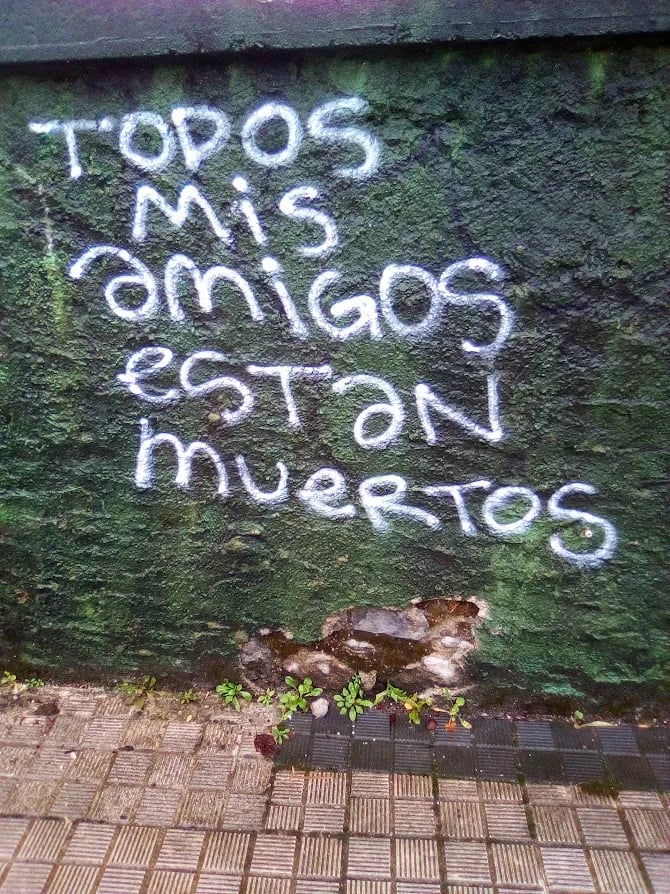 TODOS
MIS
amIGOS
eSTaN
mUeRTOS